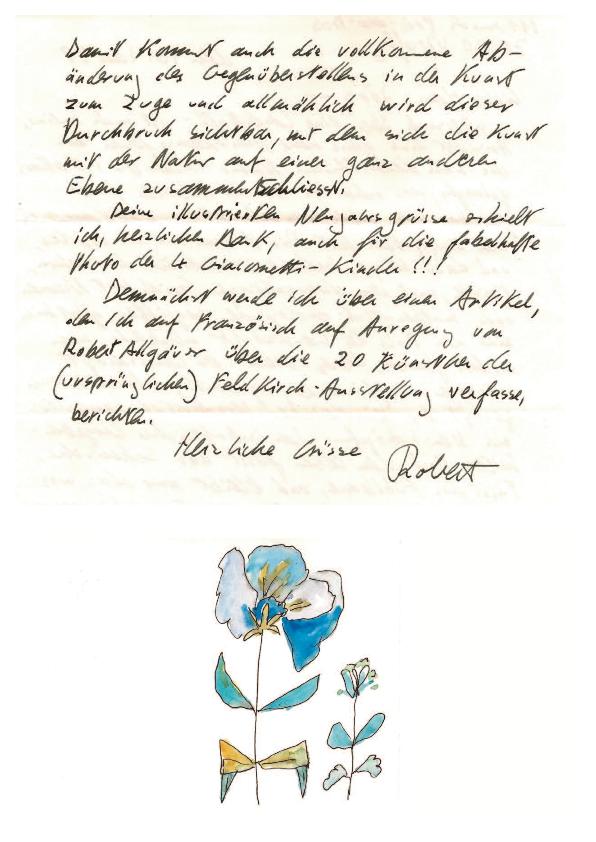 Damit kommt auch die vollkommene Ab-
änderung des Gegenüberstellens in der Kunst
zum Zuge und allmählich wird dieser
Durchbruch sichtbar, mit dem sich die Kunst
mit der Natur auf einer ganz anderen
Ebene zusammenschliesst.
Deine illustrierten Neujahrsgrüsse erhielt
ich, herzlichen Dank, auch für die fabelhafte
Photo der 4 Giacometti-Kinder !!!
Demnächst werde ich über einen Artikel,
den ich auf Französisch auf Anregung von
Robert Allgäuer über die 20 Künstler der
(ursprünglichen) Feldkirch-Ausstellung verfasse,
berichten.
Herzliche Grüsse Robert